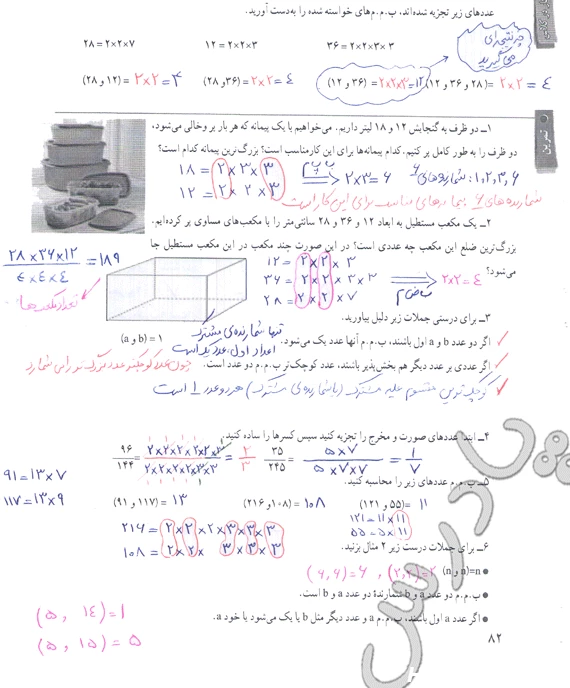 عددهای زیر تجزیه شده‌اند، ب.م.م‌های خواسته شده را به‌دست آورید.
۳۶ = ۲×۲×۳×۳
۱۲ = ۲×۲×۳
۲۸ = ۲×۲×۷
چه نتیجه‌ای می‌گیرید
(۲۸ و ۳۶ و ۱۲) = ۲×۲ = ۴
(۳۶ و ۱۲) = ۲×۲×۳ = ۱۲
(۳۶ و ۲۸) = ۲×۲ = ۴
(۱۲ و ۲۸) = ۲×۲ = ۴
تمرین
۱ــ دو ظرف به گنجایش ۱۲ و ۱۸ لیتر داریم. می‌خواهیم با یک پیمانه که هر بار پر و خالی می‌شود،
دو ظرف را به طور کامل پر کنیم. کدام پیمانه‌ها برای این کار مناسب است؟ بزرگ‌ترین پیمانه کدام است؟
۱۸ = ۲×۳×۳
۱۲ = ۲×۲×۳
ب م م ۲×۳=۶
شمارنده‌های ۶ : ۱,۲,۳,۶
شمارنده‌های ۶ پیمانه‌های مناسب برای این کار است
۲ــ یک مکعب مستطیل به ابعاد ۱۲ و ۳۶ و ۲۸ سانتی‌متر را با مکعب‌های مساوی پر کرده‌ایم.
بزرگ‌ترین ضلع این مکعب چه عددی است؟ در این صورت چند مکعب در این مکعب مستطیل جا
می‌شود؟
۱۲ = ۲×۲×۳
۳۶ = ۲×۲×۳×۳
۲۸ = ۲×۲×۷
ب م م ۲×۲=۴
۲۸×۳۶×۱۲ / ۴×۴×۴ = ۱۸۹
تعداد مکعب‌ها
۳ــ برای درستی جملات زیر دلیل بیاورید.
اگر دو عدد b و a اول باشند، ب.م.م آنها عدد یک می‌شود. (a و b) = ۱
تنها شمارنده‌ی مشترک اعداد اول عدد یک است
اگر عددی بر عدد دیگر هم بخش‌پذیر باشند، عدد کوچک‌تر ب.م.م دو عدد است. چون عدد کوچکتر عدد بزرگ‌تر را می‌شمارد
کوچک‌ترین مقسوم علیه مشترک (یا شمارنده‌ی مشترک) هر دو عدد ۱ است
۴ــ ابتدا عددهای صورت و مخرج را تجزیه کنید سپس کسرها را ساده کنید.
۳۵/۲۴۵ = ۵×۷/۵×۷×۷ = ۱/۷
۹۶/۱۴۴ = ۲×۲×۲×۲×۲×۳/۲×۲×۲×۲×۳×۳ = ۲/۳
۵ــ ب.م.م عددهای زیر را محاسبه کنید.
(۵۵ و ۱۲۱) = ۱۱
(۱۰۸ و ۲۱۶) = ۱۰۸
(۱۱۷ و ۹۱) = ۱۳
۹۱ = ۱۳×۷
۱۱۷ = ۱۳×۹
۱۲۱ = ۱۱×۱۱
۵۵ = ۵×۱۱
۲۱۶ = ۲×۲×۲×۳×۳×۳
۱۰۸ = ۲×۲×۳×۳×۳
۶ــ برای جملات درست زیر ۲ مثال بزنید.
● (n و n)=n (۲,۲)=۲ , (۶,۶)=۶
● ب.م.م دو عدد a و b شمارندهٔ دو عدد a و b است.
● اگر عدد a اول باشند، ب.م.م a و عدد دیگر مثل b یا یک می‌شود یا خود a.
(۵ , ۱۴)=۱
(۵ , ۱۵)=۵
۸۲